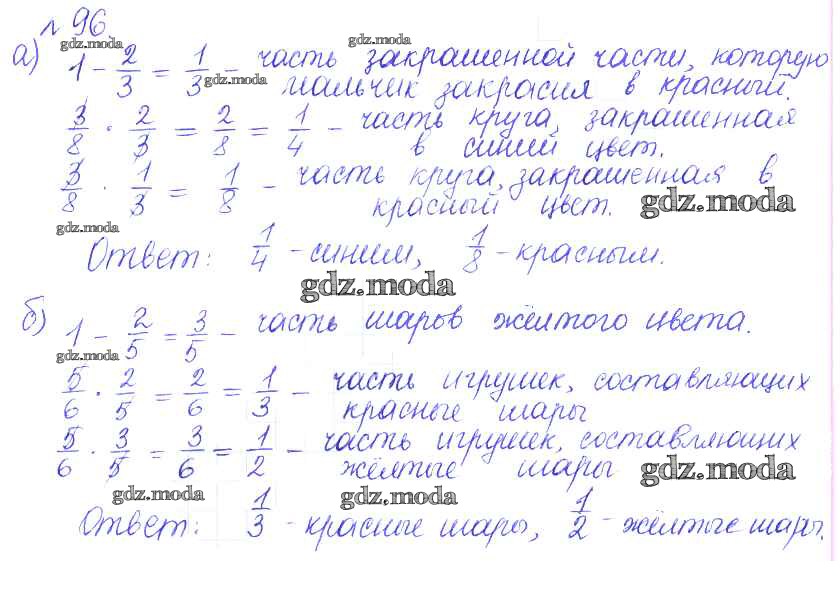 № 96.
gdz.moda gdz.moda
а) 1 - 2/3 = 1/3 - часть закрашенной части, которую
gdz.moda
мальчик закрасил в красный.
3/8 · 2/3 = 2/8 = 1/4 - часть круга, закрашенная
в синий цвет.
3/8 · 1/3 = 1/8 - часть круга, закрашенная в
красный цвет. gdz.moda
gdz.moda
Ответ: 1/4 - синим, 1/8 - красным.
gdz.moda
б) 1 - 2/5 = 3/5 - часть шаров жёлтого цвета.
gdz.moda
5/6 · 2/5 = 2/6 = 1/3 - часть игрушек, составляющих
красные шары
5/6 · 3/5 = 3/6 = 1/2 - часть игрушек, составляющих
жёлтые шары gdz.moda
gdz.moda gdz.moda
Ответ: 1/3 - красные шары, 1/2 - жёлтые шары.